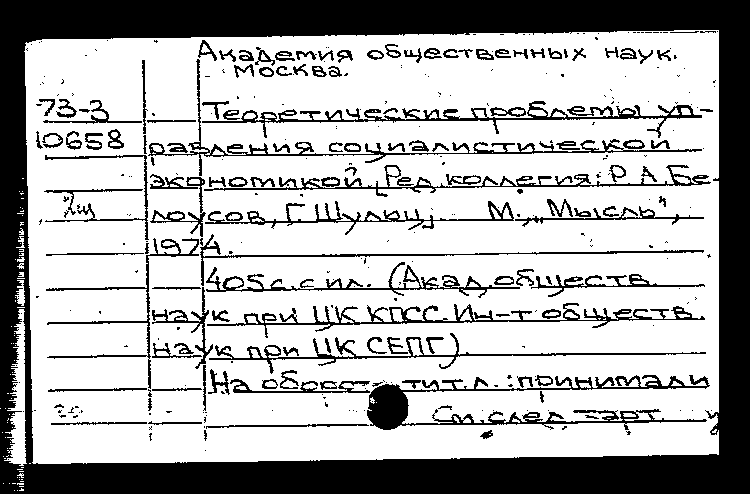 Академия общественных наук.
Москва.
73-3 Теоретические проблемы уп-
10658 равления социалистической
экономикой. [Ред. коллегия: Р.А. Бе-
лоусов, Г. Шульц]. М., „Мысль",
1974.
405 с. с ил. (Акад. обществ.
наук при ЦК КПСС. Ин-т обществ.
наук при ЦК СЕПГ).
На обороте тит. л.: принимали
См. след. карт.